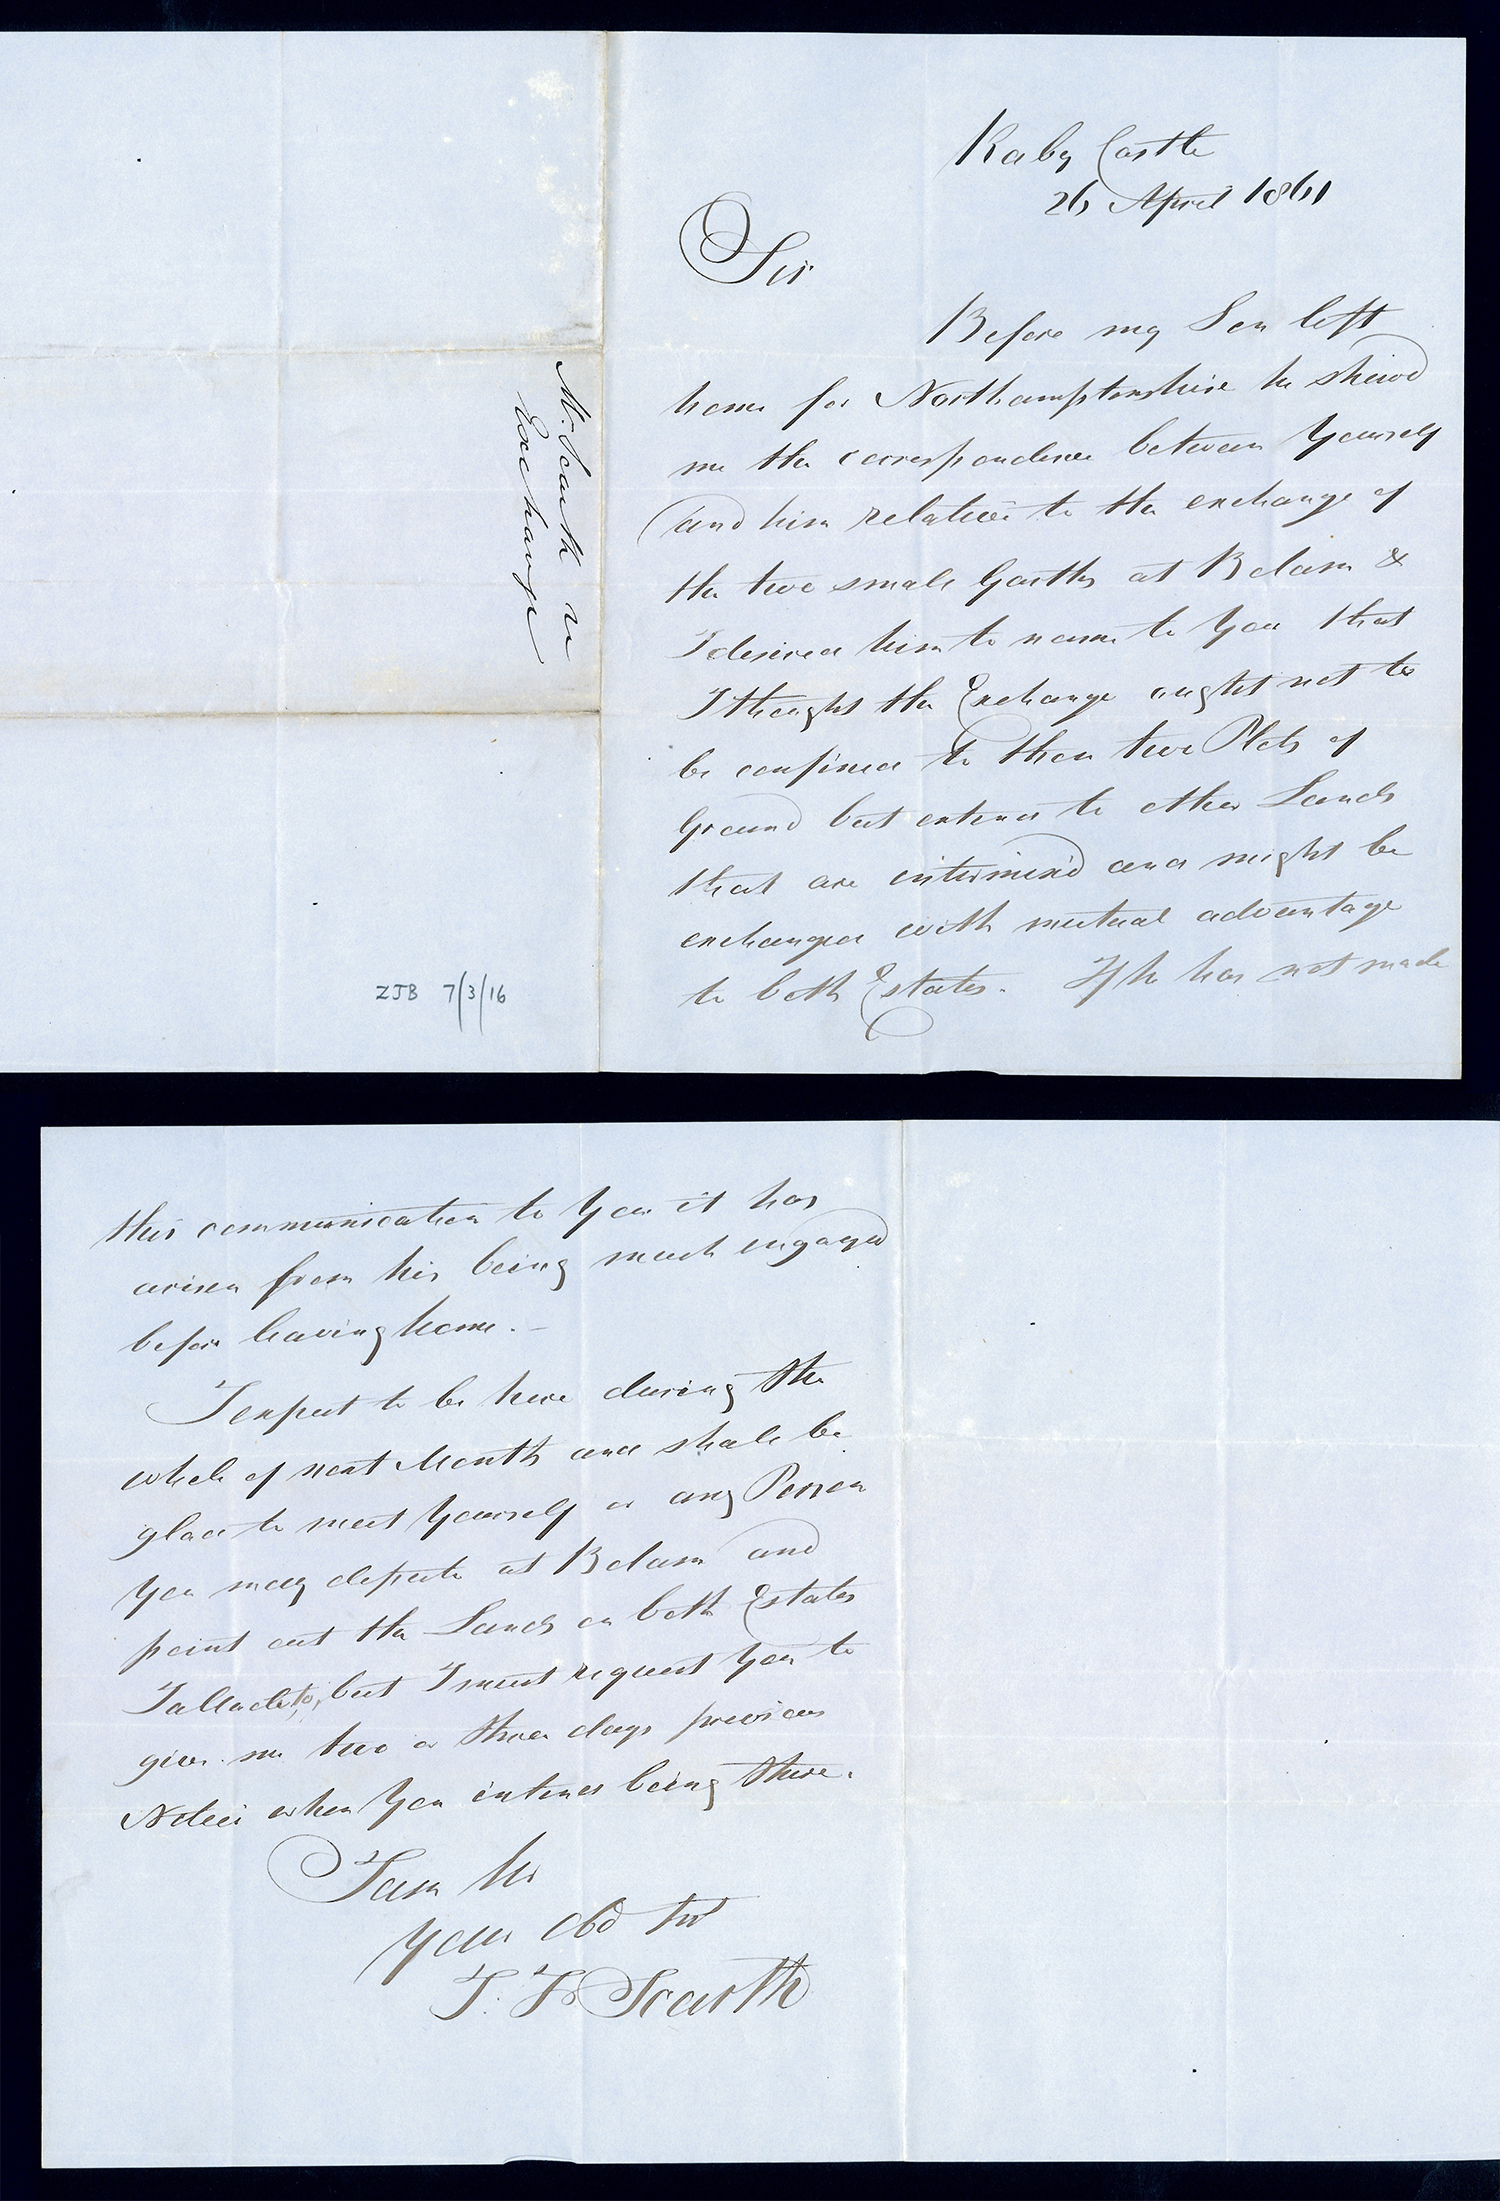 Mr. Scarth re
Exchange
ZJB 7/3/16
Raby Castle
26 April 1861
Sir
Before my Son left
home for Northamptonshire he shewd
me the correspondence between Yourself
and him relative to the exchange of
the two small Garths at Bolam &
I desired him to name to You that
I thought the Exchange ought not to
be confined to those two Plots of
Ground but extend to other Lands
that are intermixd and might be
exchanged with mutual advantage
to both Estates. If he has not made
this communication to You it has
arisen from his being much engaged
before leaving home. -
I expect to be here during the
whole of next Month and shall be
glad to meet Yourself or any Person
You may depute at Bolam and
point out the Lands on both Estates
I allude to, but I must request You to
give me two or three days previous
Notice when You intend being there.
I am Sir
Your Obd Svt
T. F. Scarth